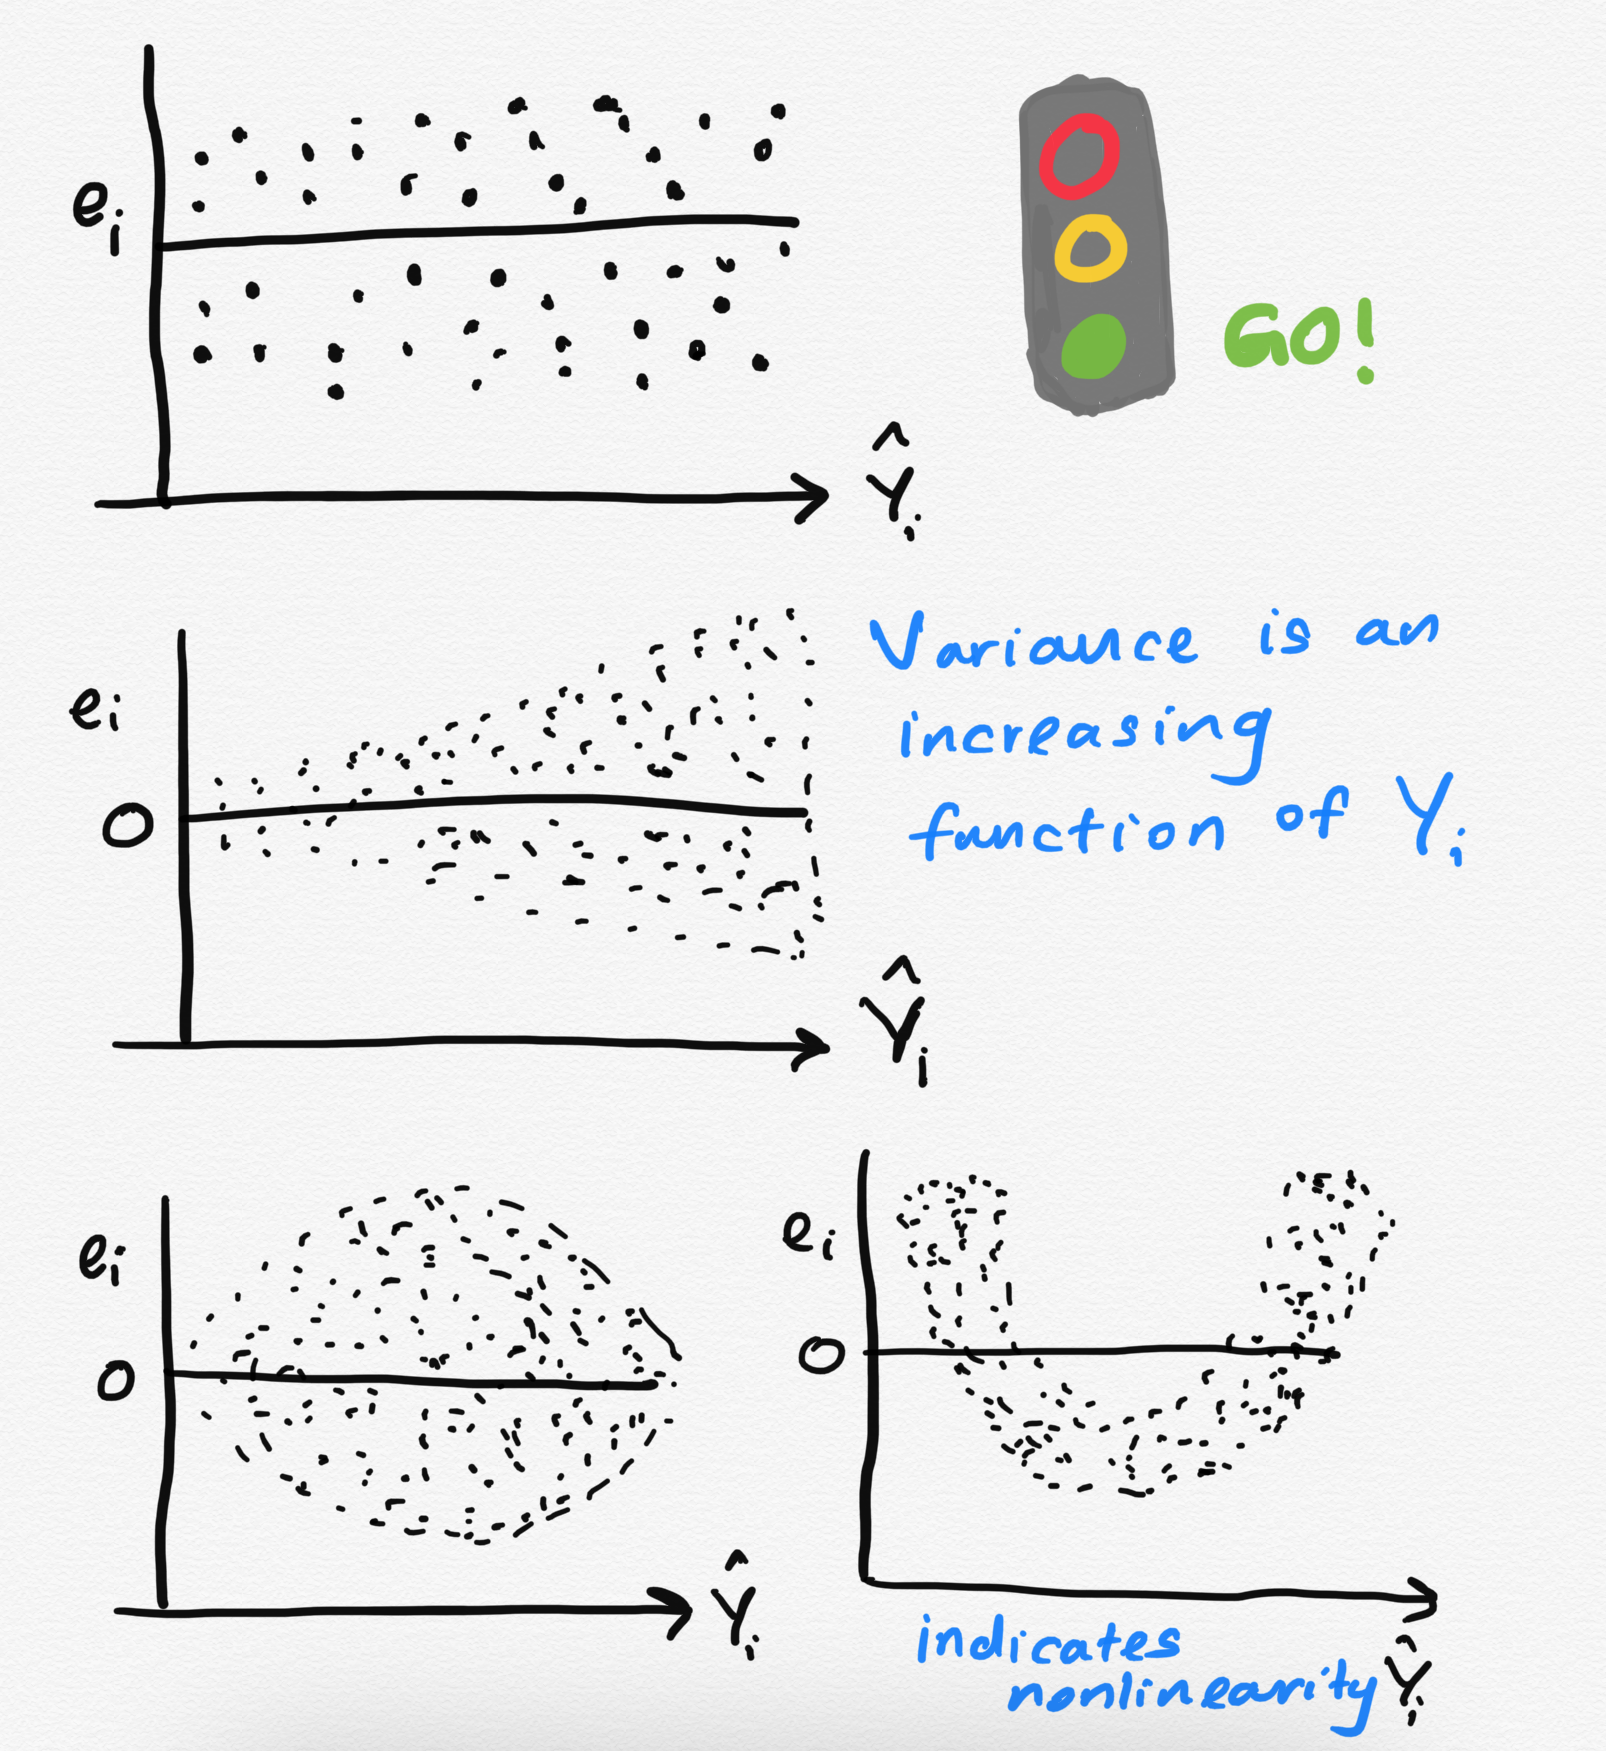 e_i
GO!
Ŷ_i
e_i
Variance is an
increasing
function of Y_i
0
Ŷ_i
e_i
0
Ŷ_i
e_i
0
indicates
nonlinearity
Ŷ_i